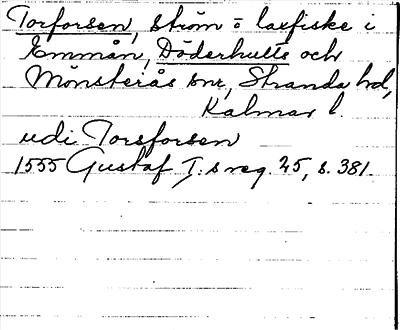 Torforsen, ström o laxfiske i
Emmån, Döderhults och
Mönsterås snr, Stranda hd,
Kalmar l.
udi Torsforsen
1555 Gustaf I:s reg. 25, s. 381.